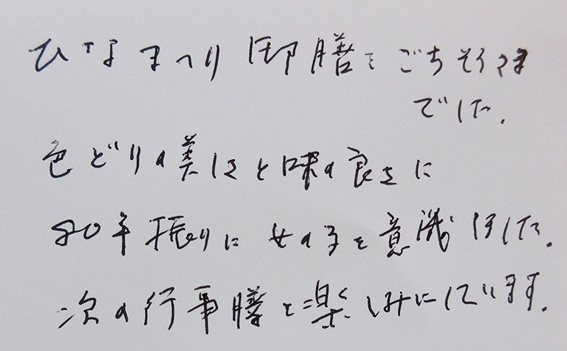 ひなまつり御膳をごちそうさま
でした。
色どりの美しさと味の良さに
80年振りに女の子を意識しました。
次の行事膳を楽しみにしています。